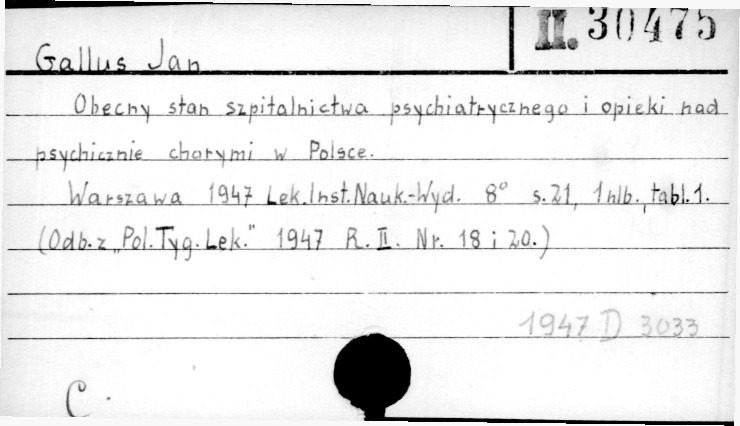 II. 30475
Gallus Jan
Obecny stan szpitalnictwa psychiatrycznego i opieki nad
psychicznie chorymi w Polsce.
Warszawa 1947 Lek.Inst.Nauk.-Wyd. 8° s.21, 1nlb., tabl.1.
(Odb.z „Pol.Tyg.Lek." 1947 R.II. Nr. 18 i 20.)
1947 D 3033
C.